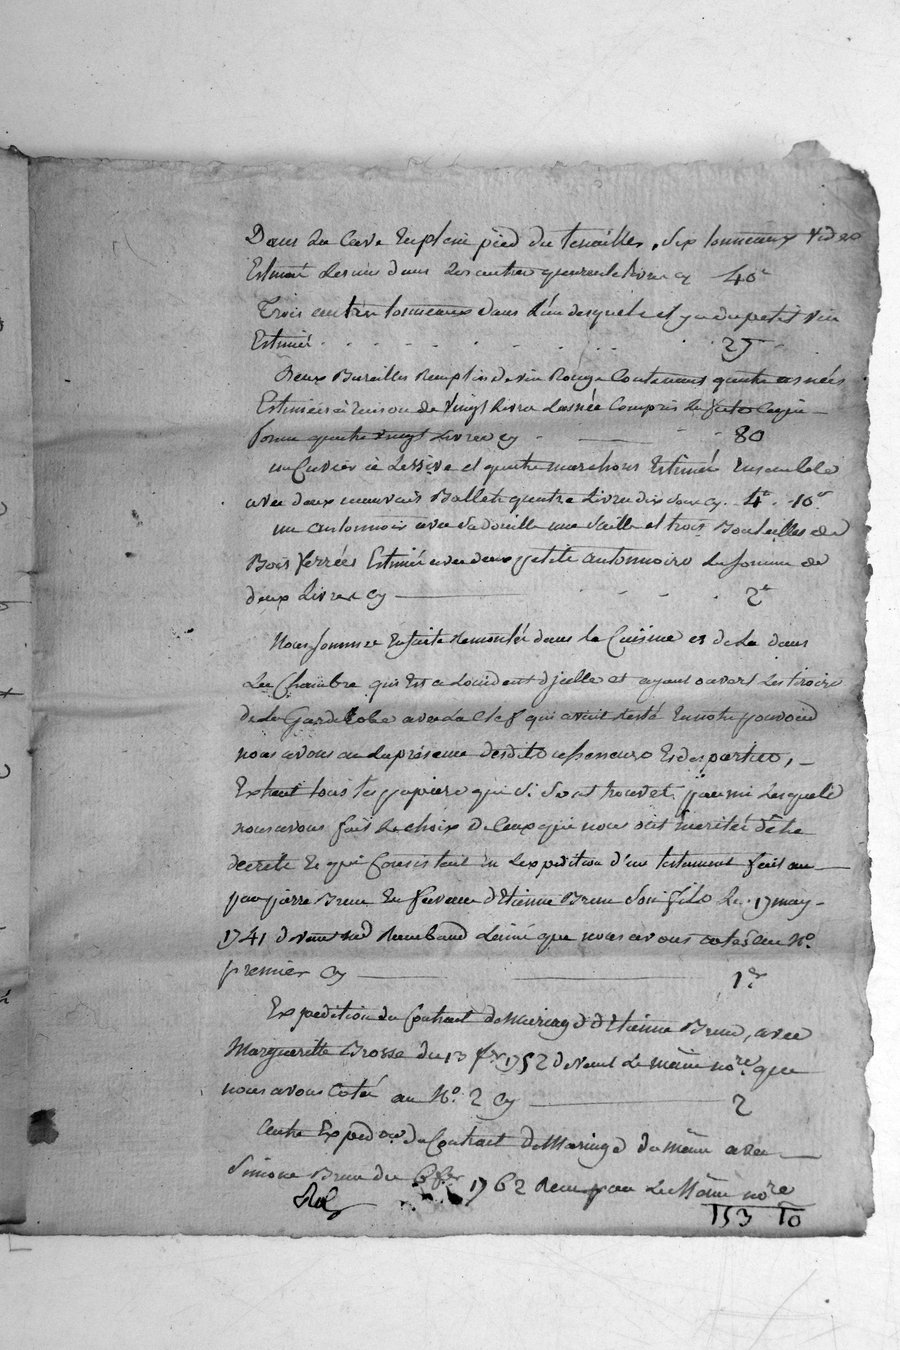 Dans la Cave En plein pied du tenailler, six tonneaux vides
Estimés Les uns dans Les autres quarante livres cy 40#
Trois autres tonneaux dans L'un desquels est y a du petit vin
Estimés . . . . . . . . . . 25
Deux Bareilles Remplis de vin Rouge Contenant quatre asnées
Estimées à raison de Vingt Livres L'asnée Compris La futs Cy
somme quatre vingt Livres cy - 80
un Cuvier à Lessive et quatre marchons Estimés Ensemble
avec deux mauvais Ballets quatre Livres dix sous cy . 4# . 10s
un antonnoir avec sa douille une seille et trois Bouteilles de
Bois ferrées Estimés avec deux petits antonnoirs La somme de
deux Livres Cy 2#
Nous sommes Ensuite Remontés dans la Cuisine et de La dans
La Chambre qui Est a L'occident d'jcelle et ayant ouvert Les tiroirs
de La Garde Robe avec La Clef qui avait resté En notre pouvoir
nous avons en La présence desdits assesseurs Et des parties,
Extrait tous les papiers qui s'y sont trouvés et parmi Lesquels
nous avons fait Le choix de Ceux qui nous ont mérités d'être
décrits Et qui Consistent En L'expédition d'un testament fait
par pierre Brun En faveur d'Etienne Brun Son fils Le 17 may
1741 devant Rambaud L'ainé que nous avons cotés au No.
premier Cy 1er
Expédition du Contract de Mariage d'Etienne Brun, avec
Margueritte Brosse du 13 1752 devant Le même nore. que
nous avons Cotés au No. 2 Cy 2
autre Expedon du Contract de Mariage du même avec
Simone Brun du 1762 Reçu par Le Même nore
153 10